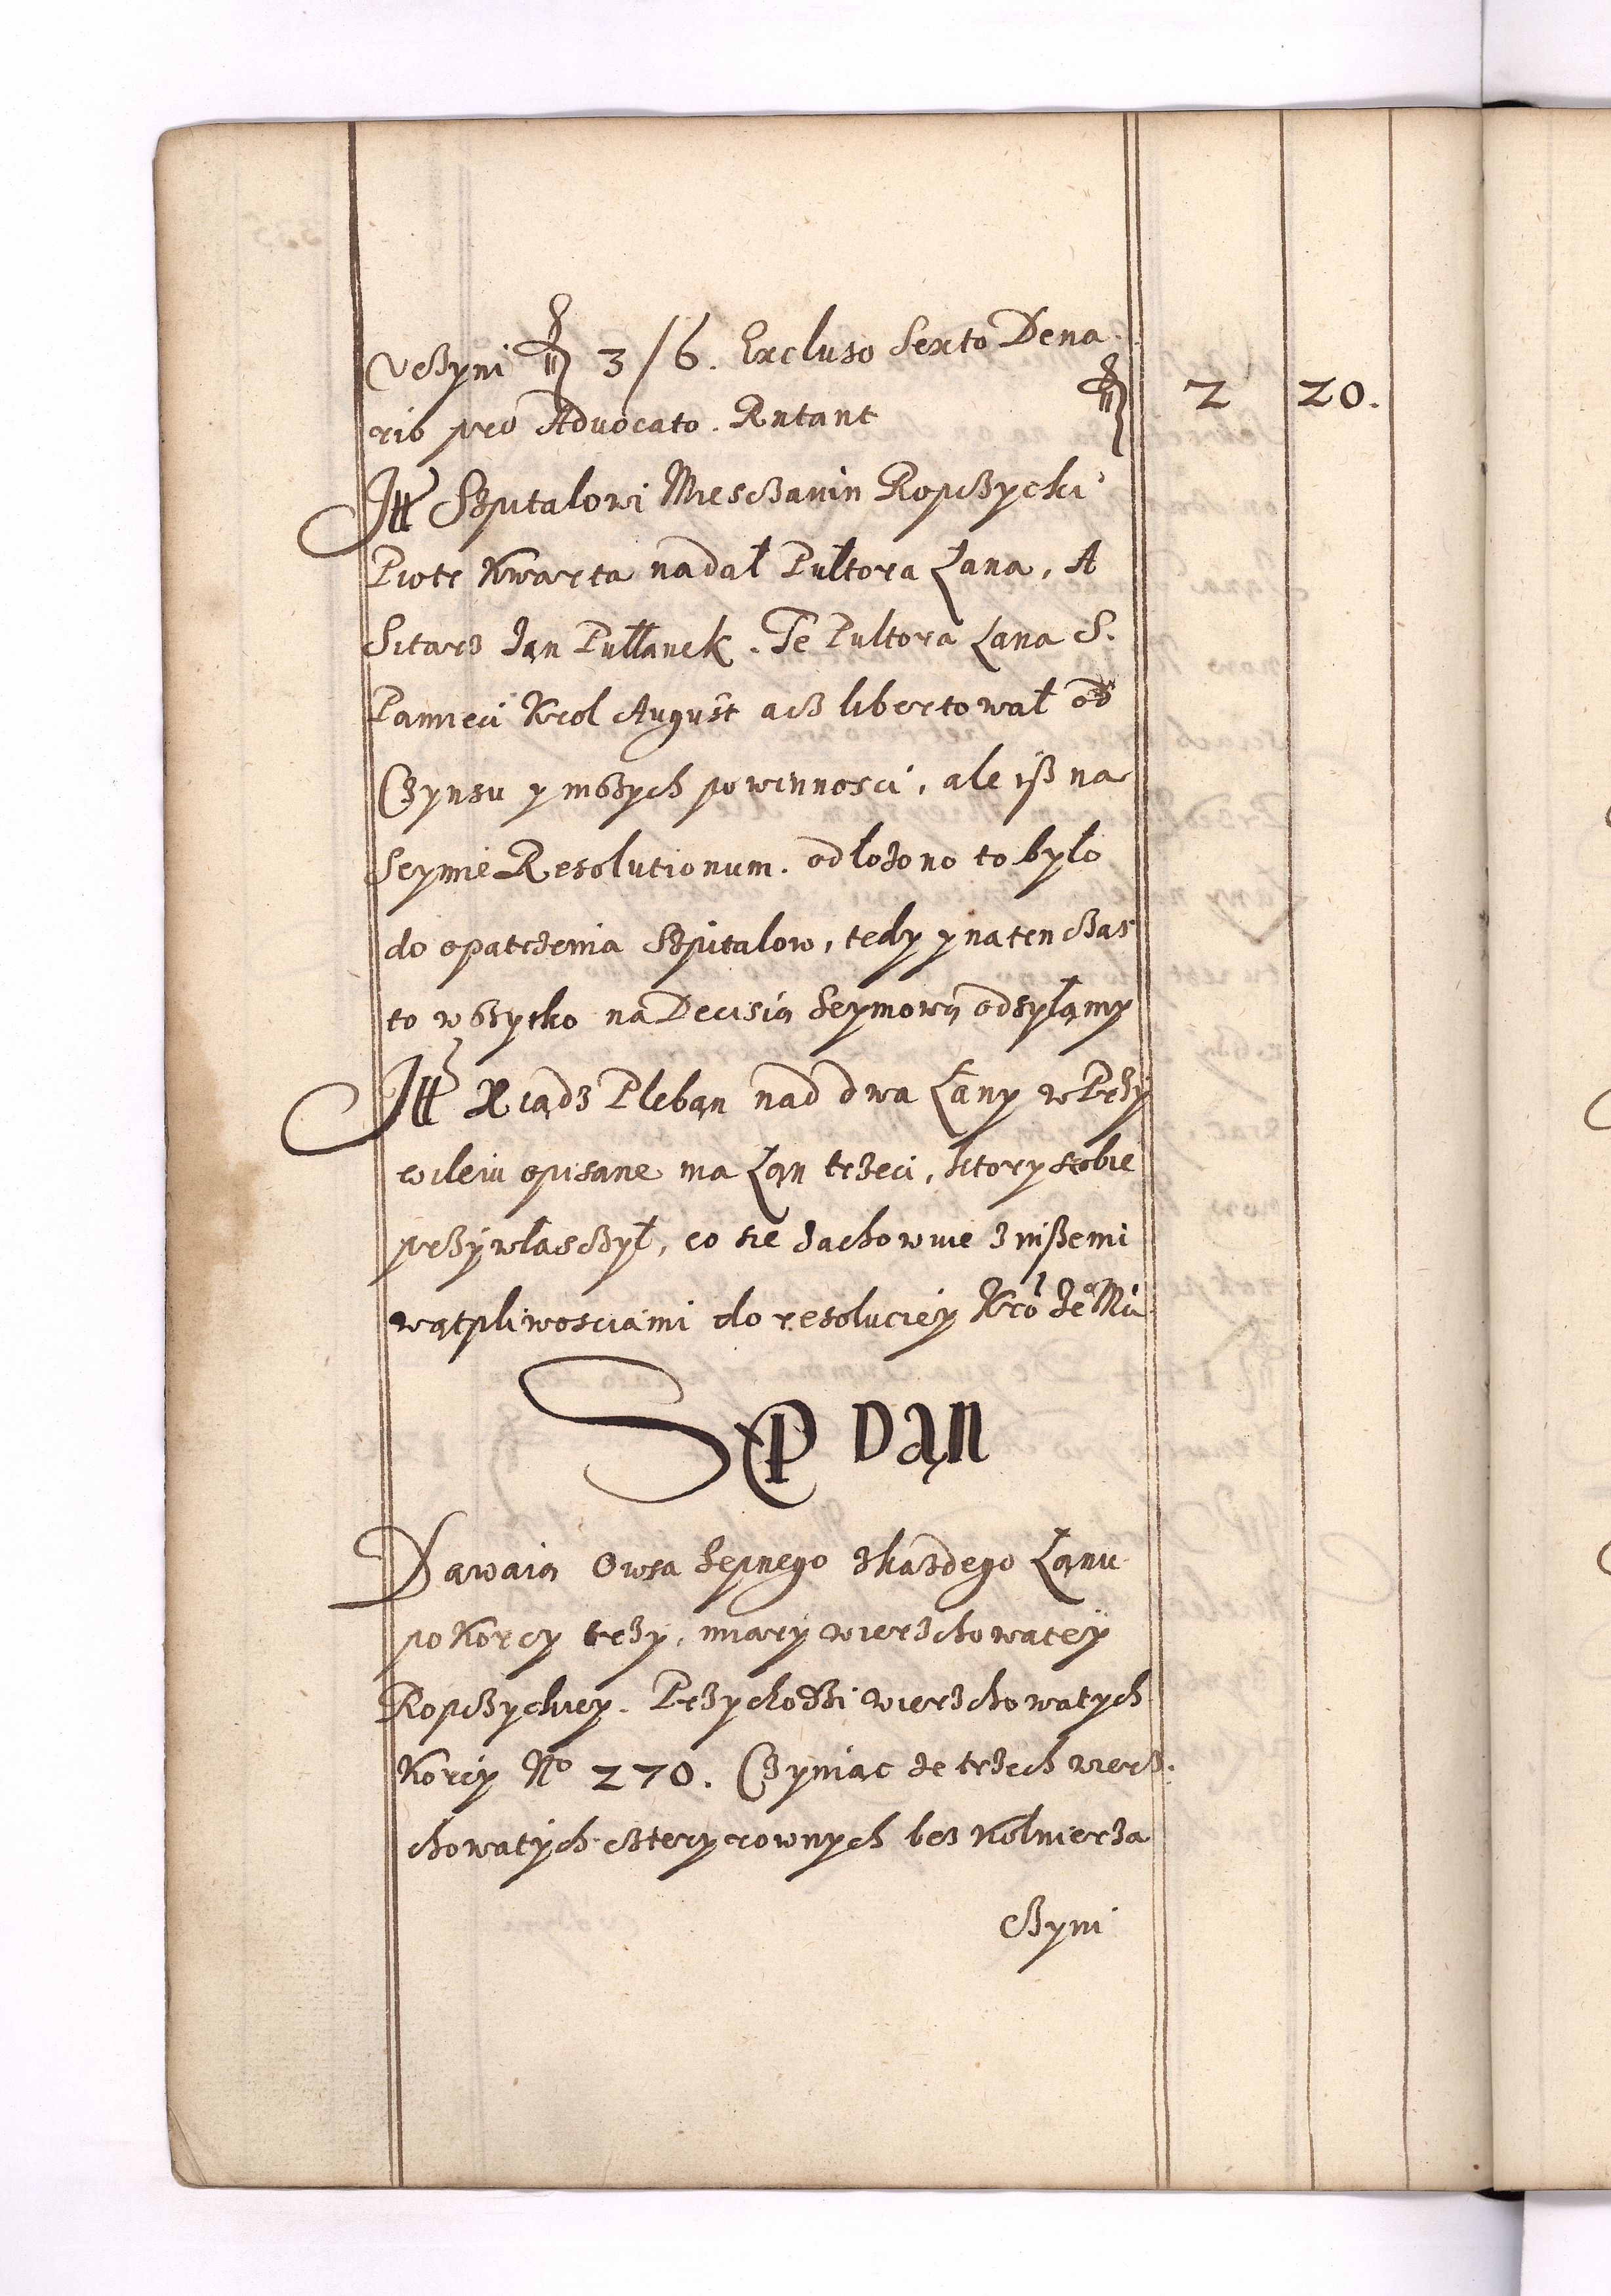 Uczyni fl 3/6. Excluso Sexto Dena
rio pro Advocato. Rntant fl 2 20.
Itt Szpitalowi Miesczanin Ropczycki
Piotr Kwarta nadał Pułtora Łana, A
Sitarz Jan Pułłanek. Te Pultora Łana S.
Pamieci Krol August acz libertował od
Czynsu y inszych powinnosci, ale isz na
Seymie Resolutionum. odłozono to było
do opatrzenia Szpitalow, tedy y na ten czas
to wszytko na Decisią Seymową odsyłamy
Itt Xiądz Pleban nad dwa Łany w Przy
wileiu opisane ma Łan trzeci, ktory sobie
przywłasczył, co sie zachowuie z inszemi
wątpliwosciami do resoluciey Kro Je Mći
Sęp Dan
Dawaią Owsa Sepnego z kazdego Łanu
po Korcy trzy, miary wierzchowatey
Ropczyckiey. Przychodzi wierzchowatych
Korcy No 270. Czyniąc ze trzech wierz
chowatych cztery rownych bez Kołnierza
czyni